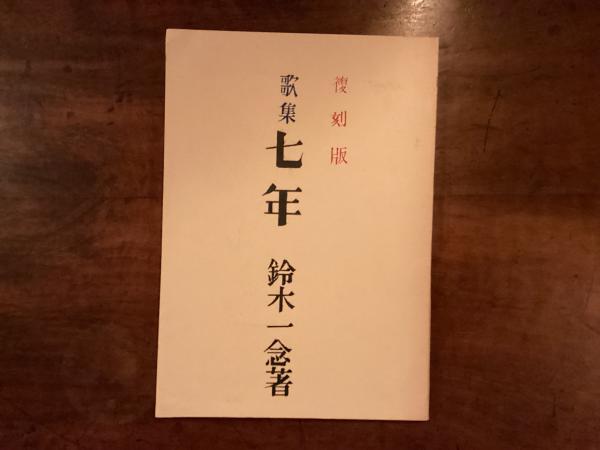 復刻版
歌集 七年 鈴木一念著